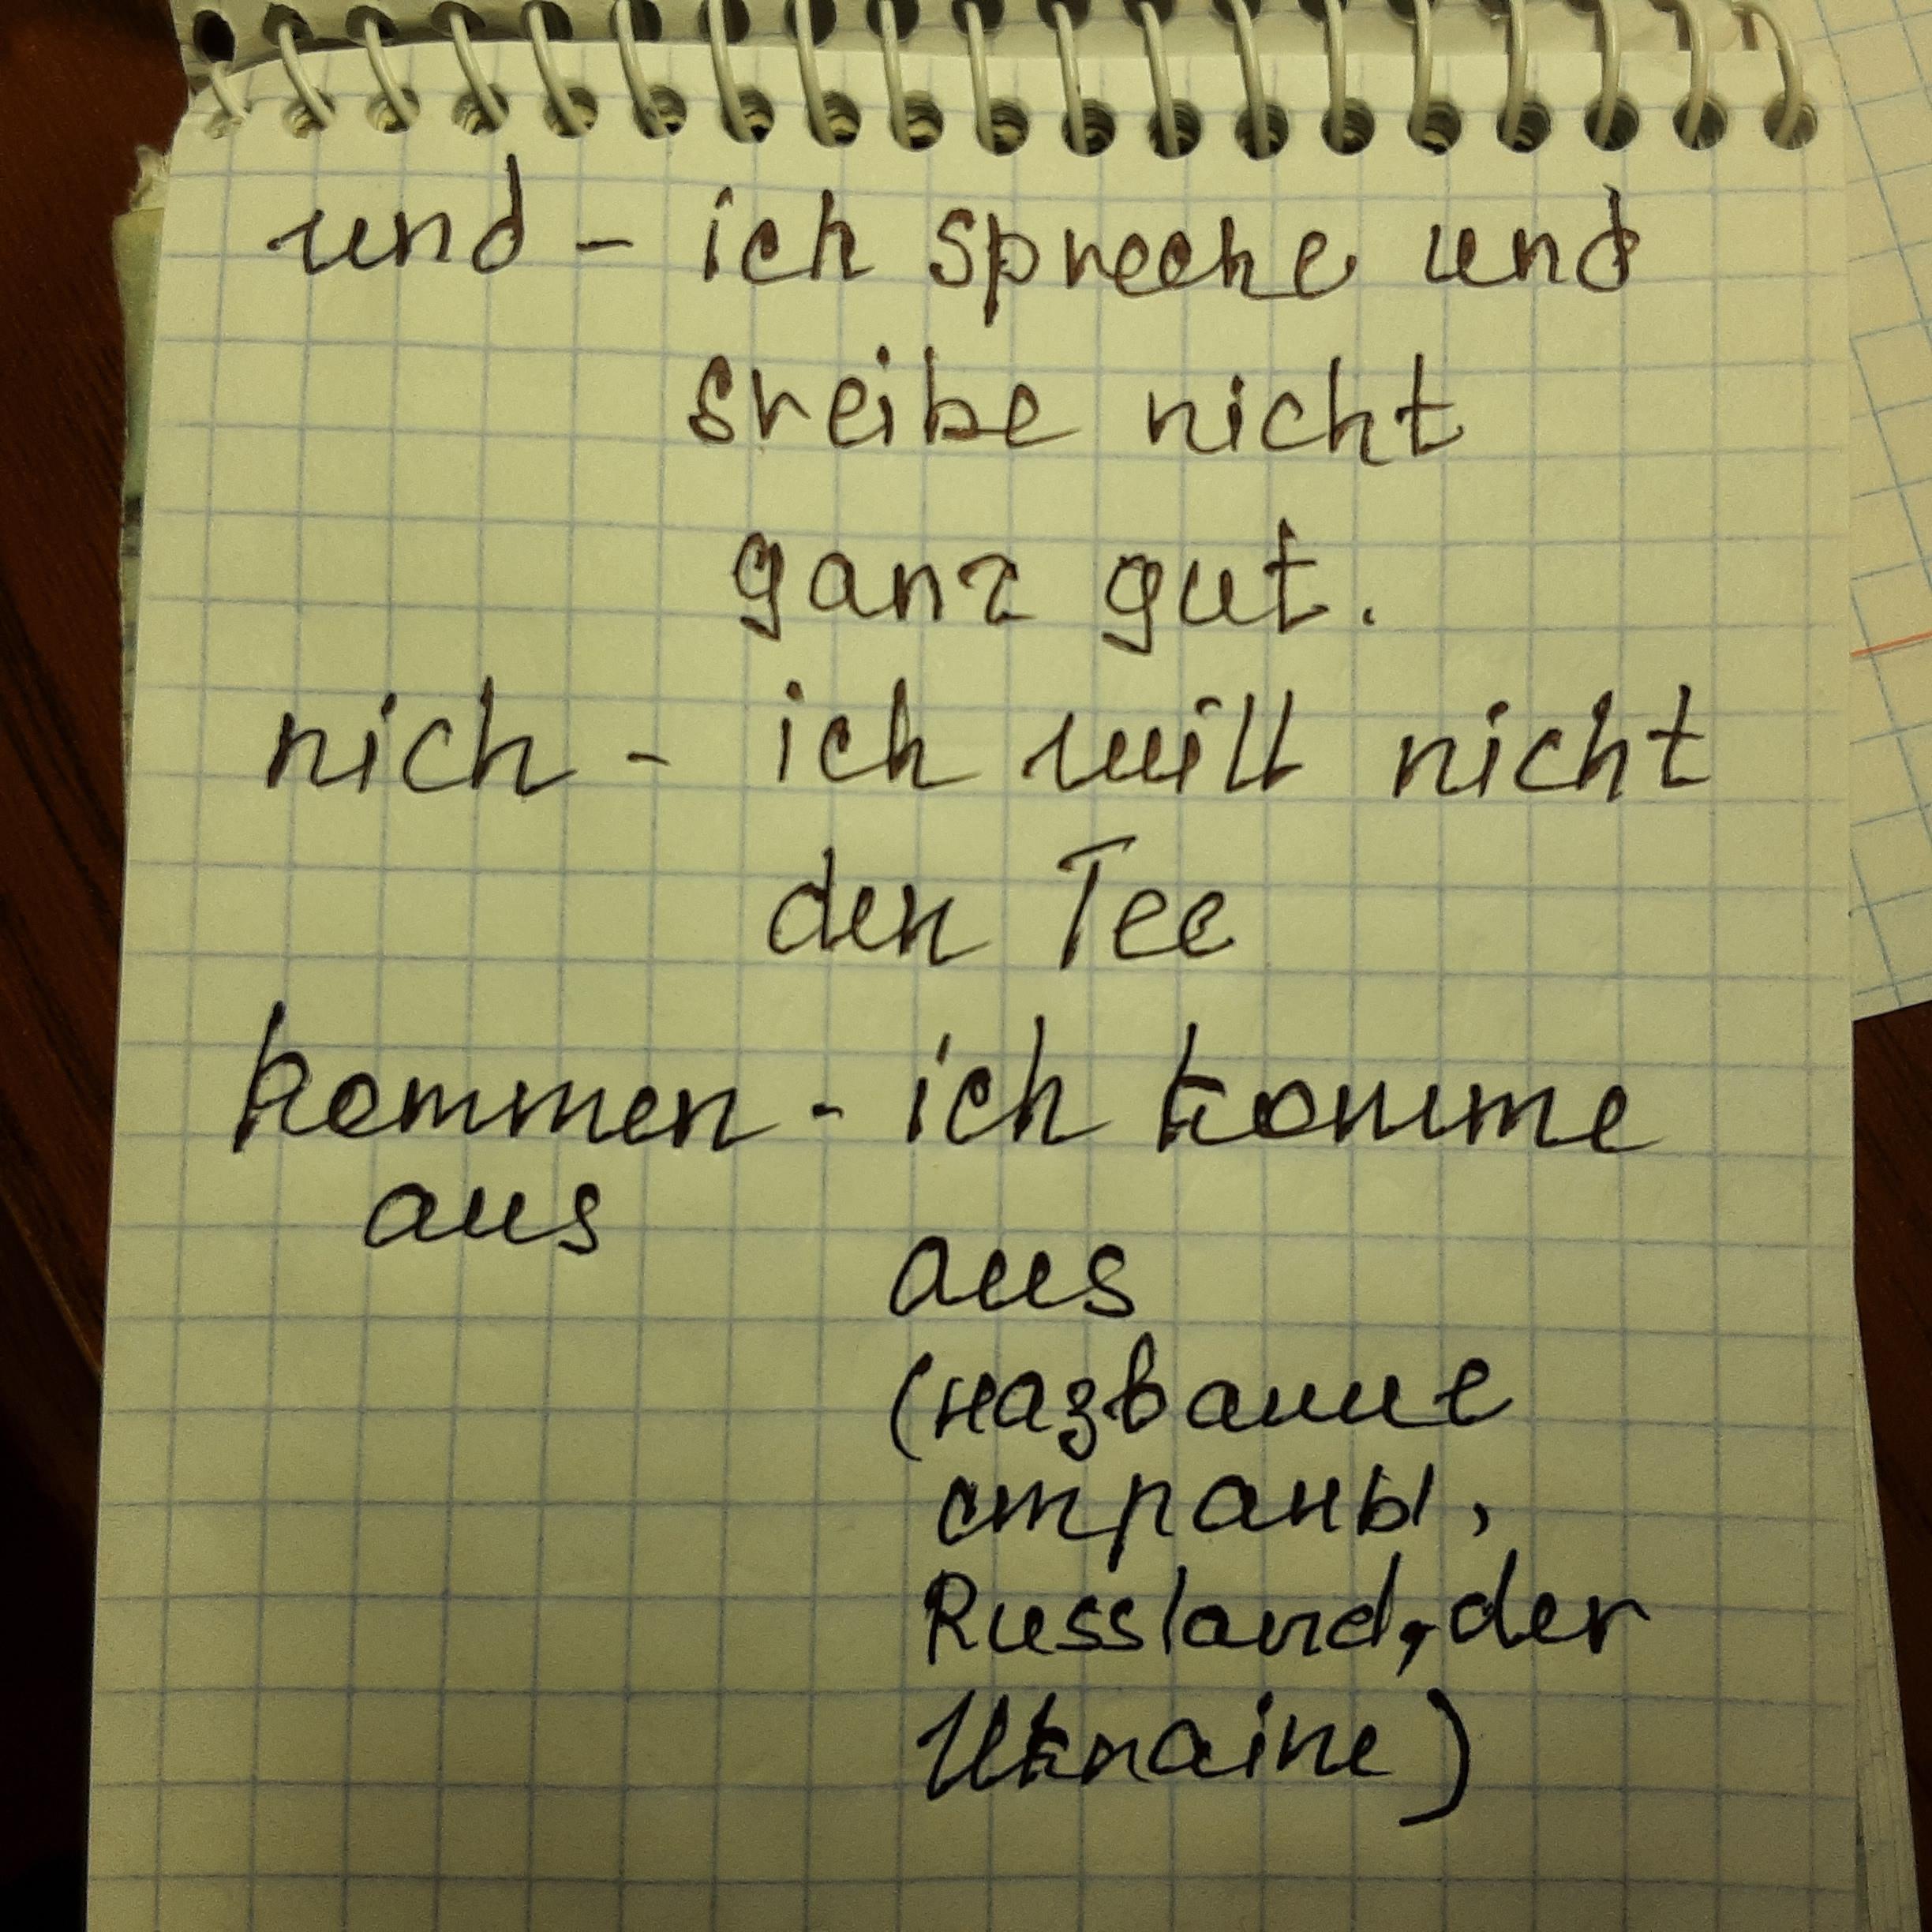 und - ich spreche und
sreibe nicht
ganz gut.
nich - ich will nicht
den Tee
kommen - ich komme
aus
aus
(название
страны,
Russland, der
Ukraine)